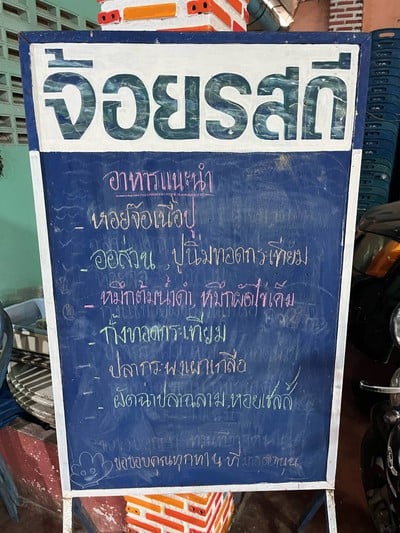 จ้อยรสดี
อาหารแนะนำ
- หอยจ๊อเนื้อปู
- ออส่วน, ปูนิ่มทอดกระเทียม
- หมึกต้มน้ำดำ, หมึกผัดไข่เค็ม
- กั้งทอดกระเทียม
- ปลากระพงเผาเกลือ
- ผัดฉ่าปลาฉลาม, หอยเชลล์
ขอขอบคุณทุกท่าน ที่